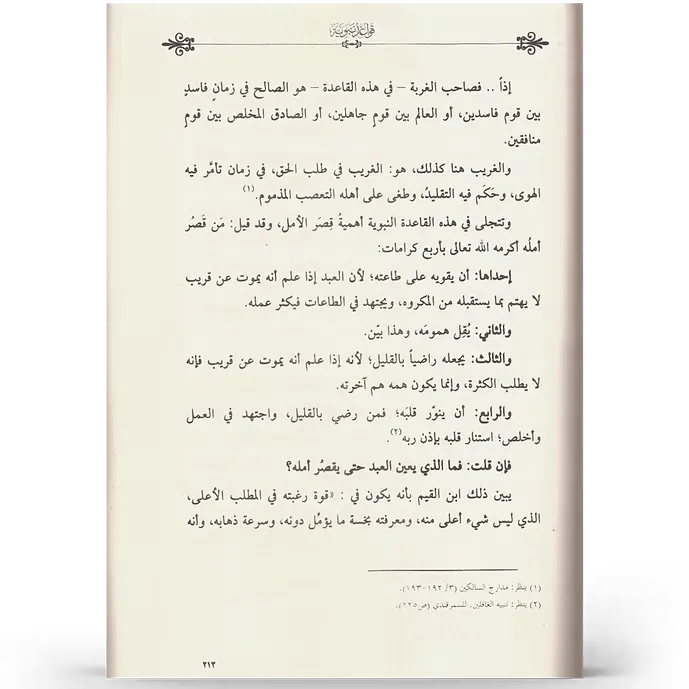 قواعد نبوية
إذاً .. فصاحب الغربة – في هذه القاعدة – هو الصالح في زمانٍ فاسدٍ
بين قوم فاسدين، أو العالم بين قومٍ جاهلين، أو الصادق المخلص بين قومٍ
منافقين.
والغريب هنا كذلك، هو: الغريب في طلب الحق، في زمان تأمَّر فيه
الهوى، وحَكَم فيه التقليدُ، وطغى على أهله التعصب المذموم.(١)
وتتجلى في هذه القاعدة النبوية أهميةُ قِصَر الأمل، وقد قيل: مَن قَصُر
أملُه أكرمه الله تعالى بأربع كرامات:
إحداها: أن يقويه على طاعته؛ لأن العبد إذا علم أنه يموت عن قريب
لا يهتم بما يستقبله من المكروه، ويجتهد في الطاعات فيكثر عمله.
والثاني: يُقِل همومَه، وهذا بيّن.
والثالث: يجعله راضياً بالقليل؛ لأنه إذا علم أنه يموت عن قريب فإنه
لا يطلب الكثرة، وإنما يكون همه هم آخرته.
والرابع: أن ينوّر قلبَه؛ فمن رضي بالقليل، واجتهد في العمل
وأخلص؛ استنار قلبه بإذن ربه(٢).
فإن قلت: فما الذي يعين العبد حتى يقصُر أمله؟
يبين ذلك ابن القيم بأنه يكون في : «قوة رغبته في المطلب الأعلى،
الذي ليس شيء أعلى منه، ومعرفته بخسة ما يؤمِّل دونه، وسرعة ذهابه، وأنه
(١) ينظر: مدارج السالكين (٣/ ١٩٢-١٩٣).
(٢) ينظر: تنبيه الغافلين، للسمرقندي (ص٢٢٥).
٢١٣